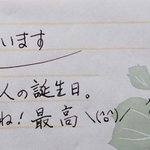 います
人の誕生日。
ね！最高 \(^o^)/